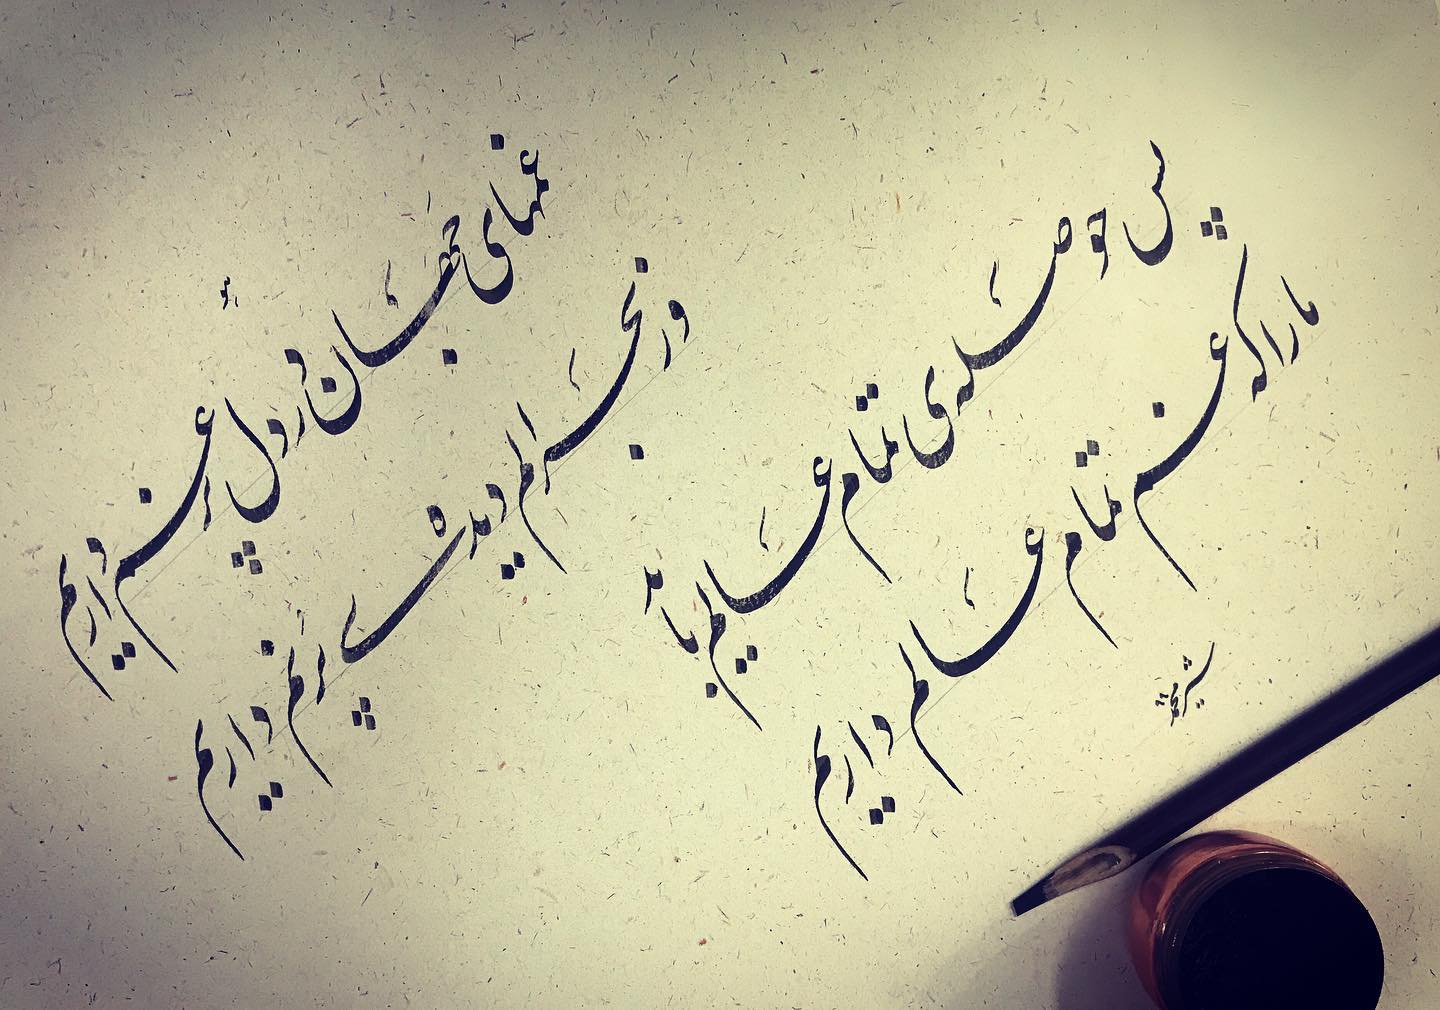 هو
غمهای جهان در دل پر غم داریم
وز بحر الم دیده ی پر نم داریم
پس حوصله ی تمام عالم باید
ما را که غم تمام عالم داریم